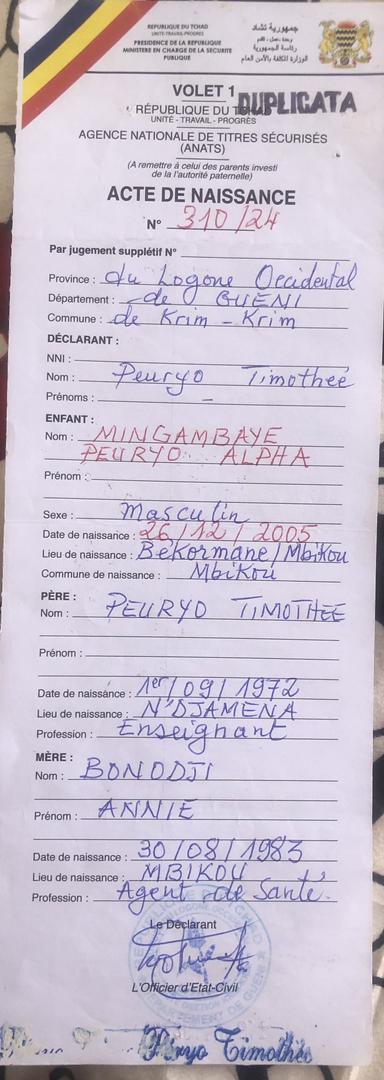 REPUBLIQUE DU TCHAD
UNITE-TRAVAIL-PROGRES
PRESIDENCE DE LA REPUBLIQUE
MINISTERE EN CHARGE DE LA SECURITE
PUBLIQUE
جمهورية تشاد
وحدة ـ عمل ـ تقدم
رئاسة الجمهورية
الوزارة المكلفة بالأمن العام
VOLET 1
DUPLICATA
RÉPUBLIQUE DU TCHAD
UNITÉ - TRAVAIL - PROGRÈS
AGENCE NATIONALE DE TITRES SÉCURISÉS
(ANATS)
(A remettre à celui des parents investi
de la l'autorité paternelle)
ACTE DE NAISSANCE
N° 310/24
Par jugement supplétif N°
Province : du Logone Occidental
Département : de GUENI
Commune : de Krim-Krim
DÉCLARANT :
NNI :
Nom : Peuryo Timotheé
Prénoms : -
ENFANT :
Nom : MINGAMBAYE
PEURYO ALPHA
Prénom :
Sexe : Masculin
Date de naissance : 26/12/2005
Lieu de naissance : Bekormane/Mbikou
Commune de naissance : Mbikou
PÈRE :
Nom : PEURYO TIMOTHEE
Prénom :
Date de naissance : 1er/09/1972
Lieu de naissance : N'DJAMENA
Profession : Enseignant
MÈRE :
Nom : BONODJI
Prénom : ANNIE
Date de naissance : 30/08/1983
Lieu de naissance : MBIKOU
Profession : Agent de Santé.
Le Déclarant
L'Officier d'Etat-Civil
Timothée